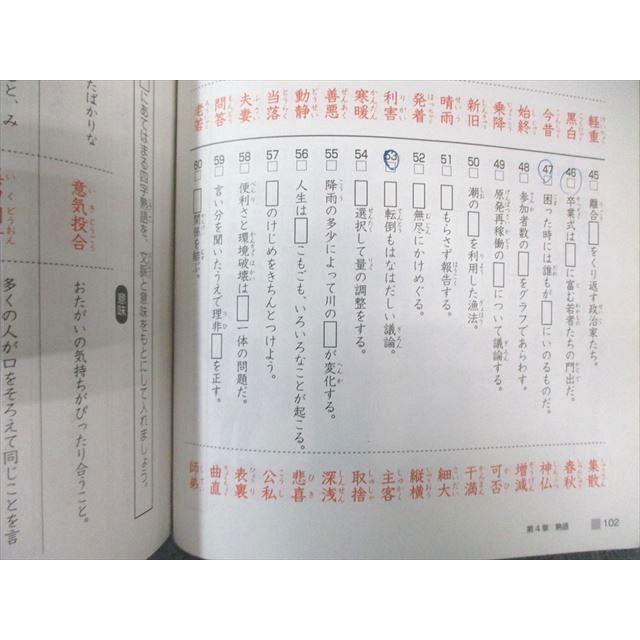 軽重
黒白
今昔
始終
乗降
新旧
晴雨
発着
利害
寒暖
善悪
動静
当落
夫妻
問答
老若
45 離合□をくり返す政治家たち。
46 卒業式は□に富む若者たちの門出だ。
47 困った時には誰もが□にいのるものだ。
48 参加者数の□をグラフであらわす。
49 原発再稼働の□について議論する。
50 潮の□を利用した漁法。
51 □もらさず報告する。
52 □無尽にかけめぐる。
53 □転倒もはなはだしい議論。
54 □選択して量の調整をする。
55 降雨の多少によって川の□が変化する。
56 人生は□こもごも、いろいろなことが起こる。
57 □のけじめをきちんとつけよう。
58 便利さと環境破壊は□一体の問題だ。
59 言い分を聞いたうえで理非□を正す。
60 □関係を結ぶ。
集散
春秋
神仏
増減
可否
干満
細大
縦横
主客
取捨
深浅
悲喜
公私
表裏
曲直
師弟
第4章 熟語 102
□にあてはまる四字熟語を、文脈と意味をもとにして入れましょう。
意味
たばかりな
意気投合
おたがいの気持ちがぴったり合うこと。
と、み
多くの人が口をそろえて同じことを言